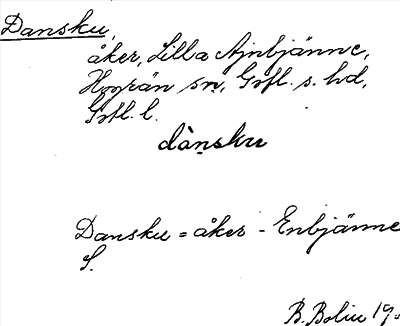 Dansku,
åker, Lilla Ajnbjänne,
Hogrän sn, Gotl. s. hd,
Gotl. l.
dànsku
Dansku = åker - Enbjänne
S.
B. Bolin 19